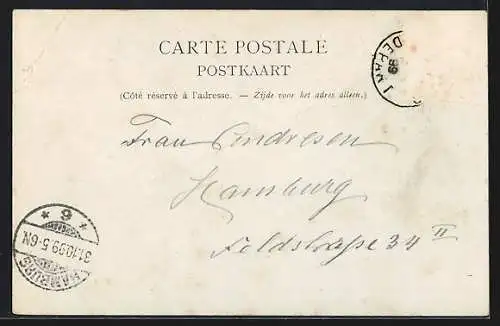 CARTE POSTALE
POSTKAART
(Côté réservé à l'adresse. — Zijde voor het adres alleen.)
DÉPART
Frau Andresen
Hamburg
Feldstrasse 34 II
* 9 *
31.10.99.5-6N
HAMBURG